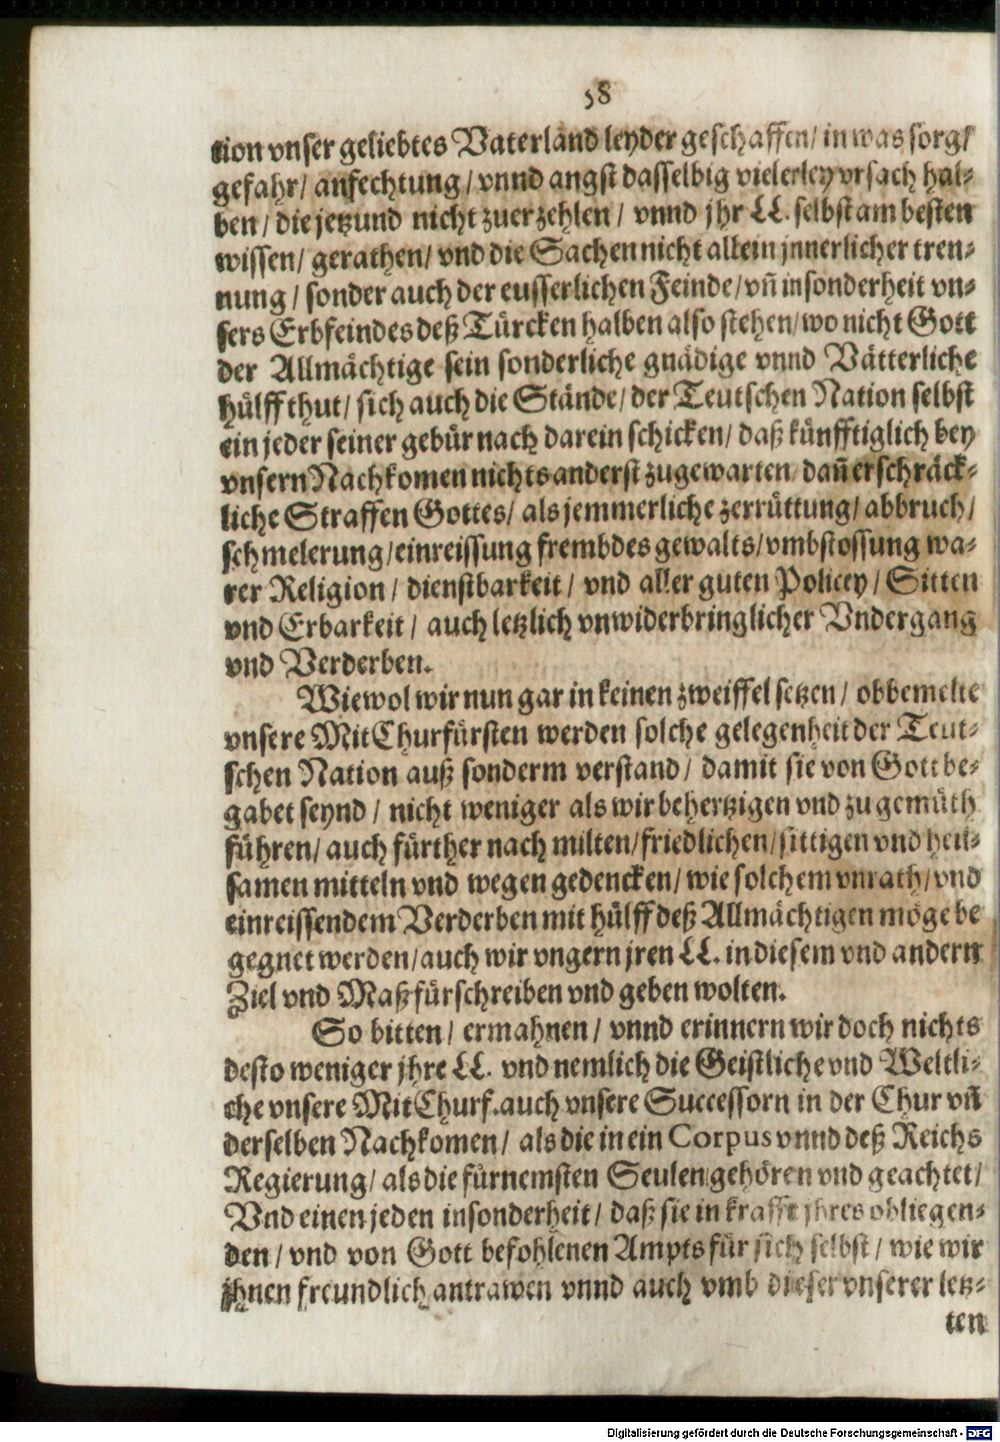 58
tion vnser geliebtes Vaterland leyder geschaffen/ in was sorg/
gefahr/ anfechtung/ vnnd angst dasselbig vielerley vrsach hal-
ben/ die jetzund nicht zuerzehlen/ vnnd jhr LL. selbst am besten
wissen/ gerathen/ vnd die Sachen nicht allein jnnerlicher tren-
nung/ sonder auch der eusserlichen Feinde/ vñ insonderheit vn-
sers Erbfeindes deß Türcken halben also stehen/ wo nicht Gott
der Allmächtige sein sonderliche gnädige vnnd Vätterliche
hülff thut/ sich auch die Stände/ der Teutschen Nation selbst
ein jeder seiner gebür nach darein schicken/ daß künfftiglich bey
vnsern Nachkomen nichts anderst zugewarten dañ erschräck-
liche Straffen Gottes/ als jemmerliche zerrüttung/ abbruch/
schmelerung/ einreissung frembdes gewalts/ vmbstossung wa-
rer Religion/ dienstbarkeit/ vnd aller guten Policey/ Sitten
vnd Erbarkeit/ auch letzlich vnwiderbringlicher Vndergang
vnd Verderben.
Wiewol wir nun gar in keinen zweiffel setzen/ obbemelte
vnsere MitChurfürsten werden solche gelegenheit der Teut-
schen Nation auß sonderm verstand/ damit sie von Gott be-
gabet seynd/ nicht weniger als wir behertzigen vnd zu gemüth
führen/ auch fürther nach milten/ friedlichen/ sittigen vnd heil-
samen mitteln vnd wegen gedencken/ wie solchem vnrath/ vnd
einreissendem Verderben mit hülff deß Allmächtigen möge be
gegnet werden/ auch wir vngern jren LL. in diesem vnd andern
Ziel vnd Maß fürschreiben vnd geben wolten.
So bitten/ ermahnen/ vnnd erinnern wir doch nichts
desto weniger jhre LL. vnd nemlich die Geistliche vnd Weltli-
che vnsere MitChurf. auch vnsere Successorn in der Chur vñ
derselben Nachkomen/ als die in ein Corpus vnnd deß Reichs
Regierung/ als die fürnemsten Seulen gehören vnd geachtet/
Vnd einen jeden insonderheit/ daß sie in krafft jhres obliegen-
den/ vnd von Gott befohlenen Ampts für sich selbst/ wie wir
jhnen freundlich antrawen vnnd auch vmb dieser vnserer letz-
ten
Digitalisierung gefördert durch die Deutsche Forschungsgemeinschaft - DFG